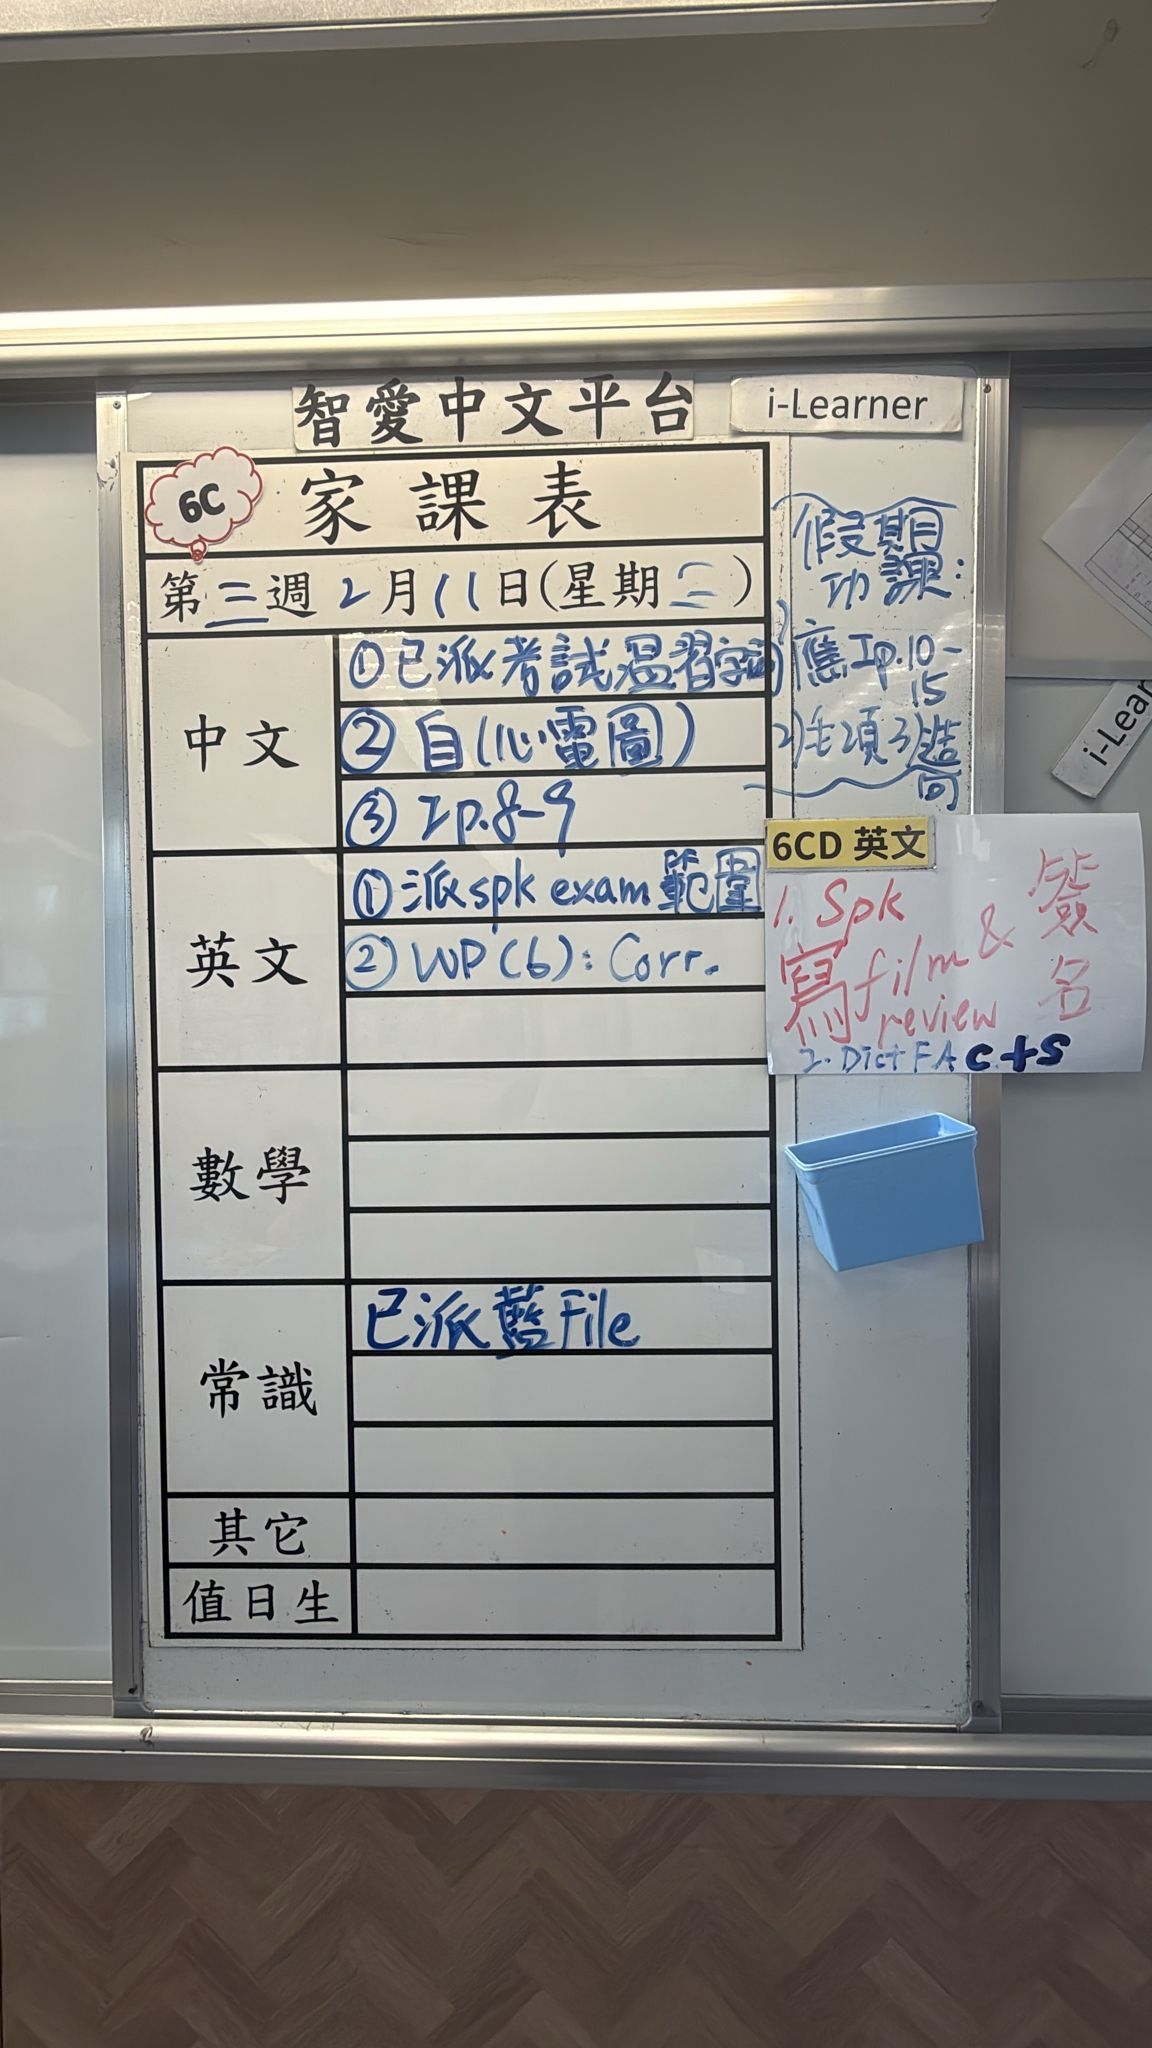 智愛中文平台
i-Learner
6C
家課表
第三週2月11日(星期二)
中文
①已派考試溫習字詞
②自(心電圖)
③Ip.8-9
英文
①派spk exam範圍
②WP(6): Corr.
數學
常識
已派藍File
其它
值日生
假期
功課:
應Ip.10-
15
2)毛2項3)造
句
6CD 英文
1. Spk
寫film &
review
簽名
2. Dict FA C+S
i-Lear